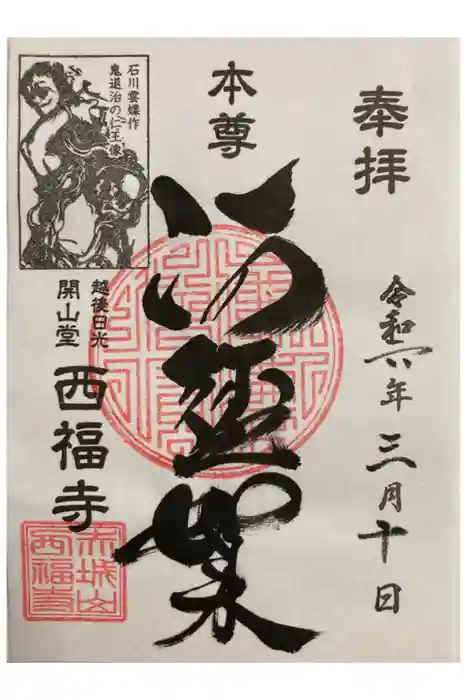 奉拝
令和六年 三月十日
本尊
石川雲蝶作
鬼退治の仁王像
越後日光
開山堂 西福寺
赤城山
西福寺